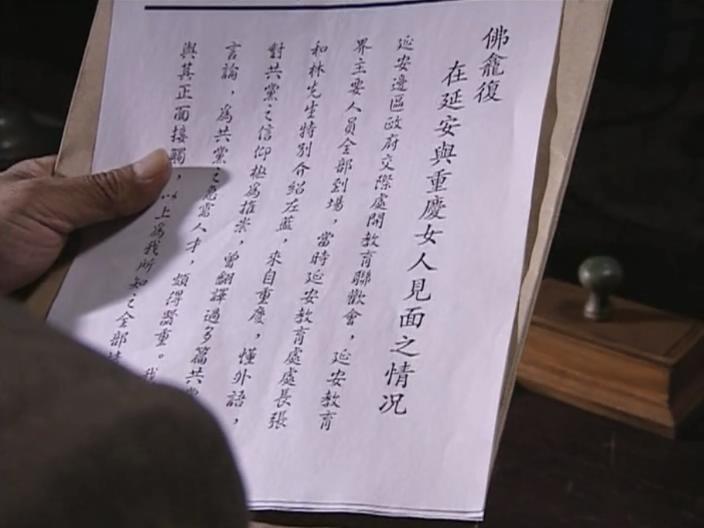 佛龕復
在延安與重慶女人見面之情况
延安邊區政府交際處開教育聯歡會，延安教育
界主要人員全部到場，當時延安教育處處長張
和林先生特別介紹左藍，來自重慶，懂外語，
對共黨之信仰極為推崇，曾翻譯過多篇共黨
言論，為共黨之人才，頗得器重。我
與其正面接觸，以上為我所知之全部